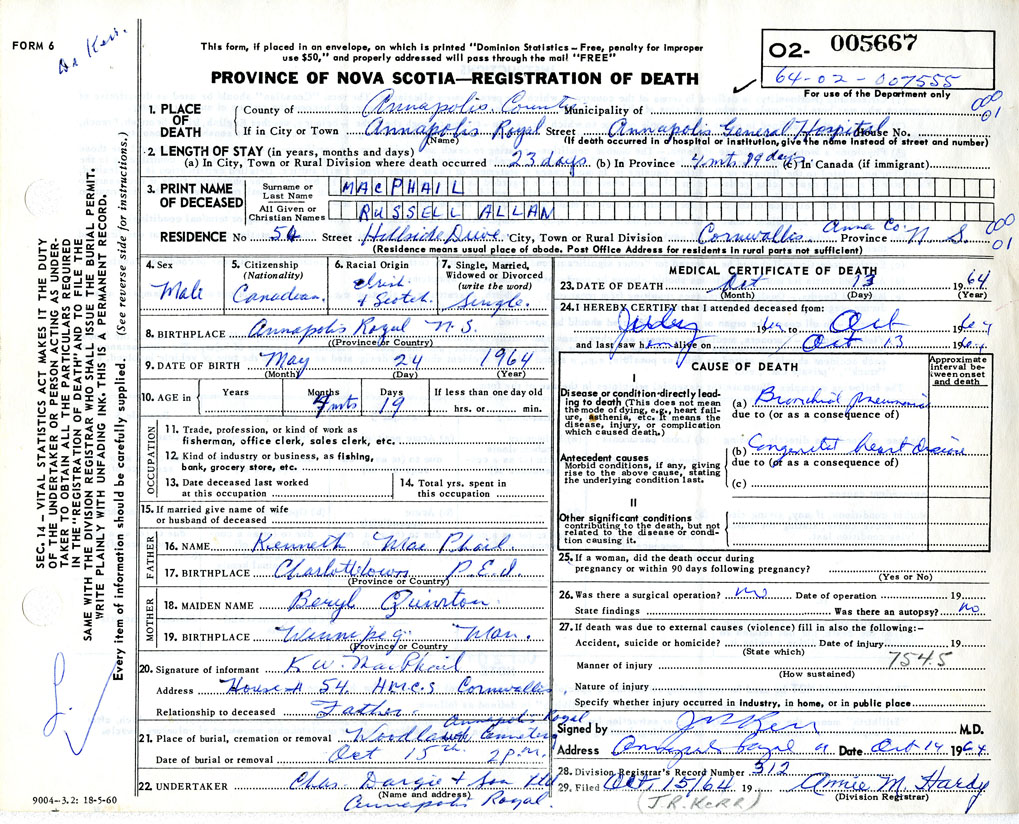 FORM 6
Dr Kerr.
This form, if placed in an envelope, on which is printed "Dominion Statistics – Free, penalty for improper
use $50," and properly addressed will pass through the mail "FREE"
PROVINCE OF NOVA SCOTIA—REGISTRATION OF DEATH
O2- 005667
64-02-007555
For use of the Department only
SEC. 14 – VITAL STATISTICS ACT MAKES IT THE DUTY
OF THE UNDERTAKER OR PERSON ACTING AS UNDER-
TAKER TO OBTAIN ALL THE PARTICULARS REQUIRED
IN THE "REGISTRATION OF DEATH" AND TO FILE THE
SAME WITH THE DIVISION REGISTRAR WHO SHALL ISSUE THE BURIAL PERMIT.
WRITE PLAINLY WITH UNFADING INK. THIS IS A PERMANENT RECORD.
Every item of information should be carefully supplied. (See reverse side for instructions.)
1. PLACE OF DEATH
County of Annapolis County Municipality of
000 01
If in City or Town Annapolis Royal Street Annapolis General Hospital House No.
(Name) (If death occurred in a hospital or institution, give the name instead of street and number)
2. LENGTH OF STAY (in years, months and days)
(a) In City, Town or Rural Division where death occurred 23 days (b) In Province 4 mts 19 days (c) In Canada (if immigrant)
3. PRINT NAME OF DECEASED
Surname or Last Name MACPHAIL
All Given or Christian Names RUSSELL ALLAN
RESIDENCE No 54 Street Hillside Drive City, Town or Rural Division Cornwallis Anna Co. Province N S.
000 01
(Residence means usual place of abode. Post Office Address for residents in rural parts not sufficient)
4. Sex
Male
5. Citizenship (Nationality)
Canadian
6. Racial Origin
Irish & Scotch.
7. Single, Married, Widowed or Divorced (write the word)
Single.
8. BIRTHPLACE Annapolis Royal N.S.
(Province or Country)
9. DATE OF BIRTH May 24 1964
(Month) (Day) (Year)
10. AGE in Years Months Days If less than one day old
4 mts 19 hrs. or min.
OCCUPATION
11. Trade, profession, or kind of work as
fisherman, office clerk, sales clerk, etc.
12. Kind of industry or business, as fishing,
bank, grocery store, etc.
13. Date deceased last worked at this occupation
14. Total yrs. spent in this occupation
15. If married give name of wife
or husband of deceased
FATHER
16. NAME Kenneth MacPhail.
17. BIRTHPLACE Charlottetown P.E.I.
(Province or Country)
MOTHER
18. MAIDEN NAME Beryl Quinton
19. BIRTHPLACE Winnipeg Man.
(Province or Country)
20. Signature of informant K W. MacPhail
Address House # 54, H.M.C.S Cornwallis
Relationship to deceased Father.
Annapolis Royal
21. Place of burial, cremation or removal Woodlawn Cemetery
Date of burial or removal Oct 15th 2 p.m.
22. UNDERTAKER Chas. Dargie & Son Ltd
(Name and address)
Annapolis Royal.
9004–3.2: 18-5-60
MEDICAL CERTIFICATE OF DEATH
23. DATE OF DEATH Oct 13 1964
(Month) (Day) (Year)
24. I HEREBY CERTIFY that I attended deceased from:
July 1964 to Oct 1964
and last saw him alive on Oct 13 1964
CAUSE OF DEATH
Approximate interval between onset and death
I
Disease or condition directly lead-
ing to death (This does not mean
the mode of dying, e.g., heart fail-
ure, asthenia, etc. It means the
disease, injury, or complication
which caused death.)
(a) Bronchial pneumonia
due to (or as a consequence of)
Antecedent causes
Morbid conditions, if any, giving
rise to the above cause, stating
the underlying condition last.
(b) Congenital heart disease
due to (or as a consequence of)
(c)
II
Other significant conditions
contributing to the death, but not
related to the disease or condi-
tion causing it.
25. If a woman, did the death occur during
pregnancy or within 90 days following pregnancy?
(Yes or No)
26. Was there a surgical operation? no Date of operation 19
State findings Was there an autopsy? no
27. If death was due to external causes (violence) fill in also the following:–
Accident, suicide or homicide? Date of injury 19
(State which)
7545
Manner of injury
(How sustained)
Nature of injury
Specify whether injury occurred in industry, in home, or in public place
Signed by J R Kerr M.D.
Address Annapolis Royal Date Oct 14 1964
28. Division Registrar's Record Number 312
29. Filed Oct 15/64 19 Annie M. Hardy
(Division Registrar)
(J.R. KERR)